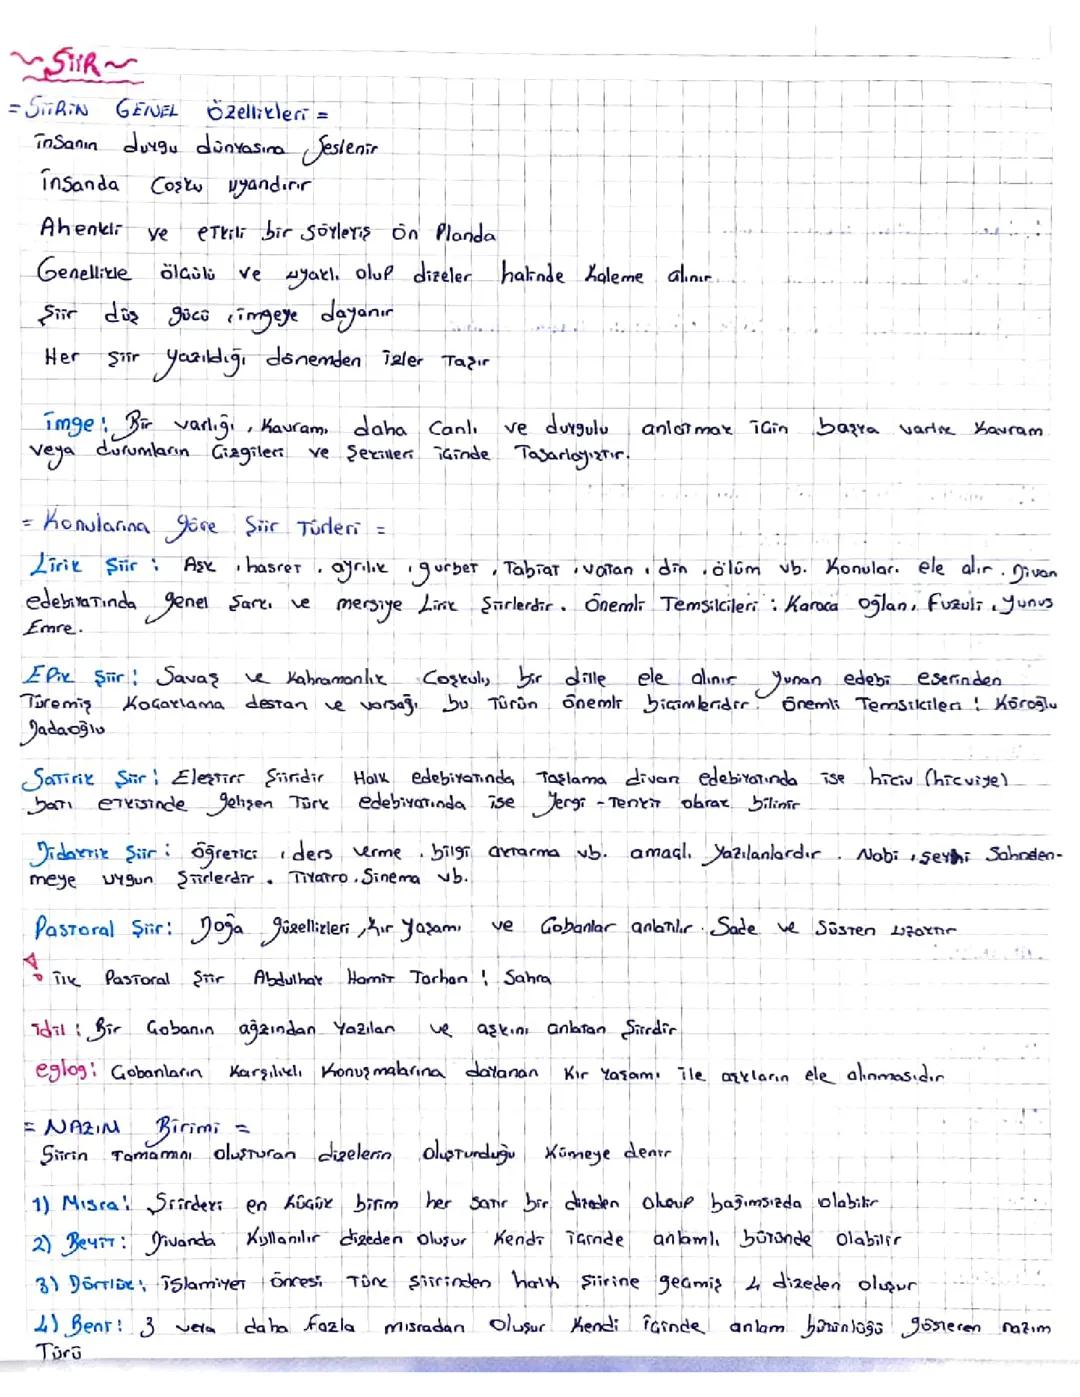 ~ŞiiR~
= ŞiiRiN GENEL Özellikleri =
insanın duygu dünyasına seslenir
insanda Coşku uyandırır
Ahenkli ve etkili bir söyleyiş ön Planda
Genellikle ölçülü ve uyaklı olup dizeler halinde kaleme alınır.
Şiir düş gücü, imgeye dayanır
Her şiir yazıldığı dönemden izler Taşır
imge: Bir varlığı, kavramı daha Canlı ve duygulu anlatmak için başka varlık kavram
veya durumların Çizgileri ve Şekilleri içinde Tasarlayıştır.
= Konularına göre Şiir Türleri =
Lirik Şiir: Aşk, hasret, ayrılık, gurbet, Tabiat, vatan, din, ölüm vb. Konuları ele alır. Divan
edebiyatında genel Şarkı ve mersiye Lirik Şiirlerdir. Önemli Temsilcileri: Karaca oğlan, Fuzuli, Yunus
Emre.
Epik Şiir: Savaş ve Kahramanlık Coşkulu bir dille ele alınır yunan edebi eserinden
Türemiş Koçaklama destan ve varsağı bu Türün önemli biçimleridir. önemli Temsilcileri: Köroğlu
Dadaoğlu
Satirik Şiir: Eleştiri Şiiridir Halk edebiyatında Taşlama divan edebiyatında ise hiciv (hicviye)
batı etkisinde gelişen Türk edebiyatında ise Yergi - Tenkit olarak bilinir
Didaktik Şiir: öğretici, ders verme, bilgi aktarma vb. amaçlı yazılanlardır. Nabi, Şeyhi Sahnden-
meye uygun Şiirlerdir. Tiyatro, Sinema vb.
Pastoral Şiir: Doğa güzellikleri, kır yaşamı ve Çobanlar anlatılır. Sade ve Süsten uzaktır
ilk Pastoral Şiir Abdulhak Hamit Tarhan: Sahra
idil: Bir Çobanın ağzından Yazılan ve aşkını anlatan Şiirdir
eglog: Çobanların Karşılıklı Konuşmalarına dayanan kır Yaşamı ile aşkların ele alınmasıdır
= NAZIM Birimi =
Şiirin Tamamını oluşturan dizelerin oluşturduğu kümeye denir
1) Mısra: Şiirdeki en küçük birim her satır bir dizeden oluşup bağımsızda olabilir
2) Beyit: Divanda Kullanılır dizeden oluşur kendi içinde anlamlı bütünde olabilir
3) Dörtlük: islamiyet öncesi Türk şiirinden halk şiirine geçmiş 4 dizeden oluşur
4) Bent: 3 veya daha fazla mısradan oluşur kendi içinde anlam bütünlüğü gösteren nazım
Türü